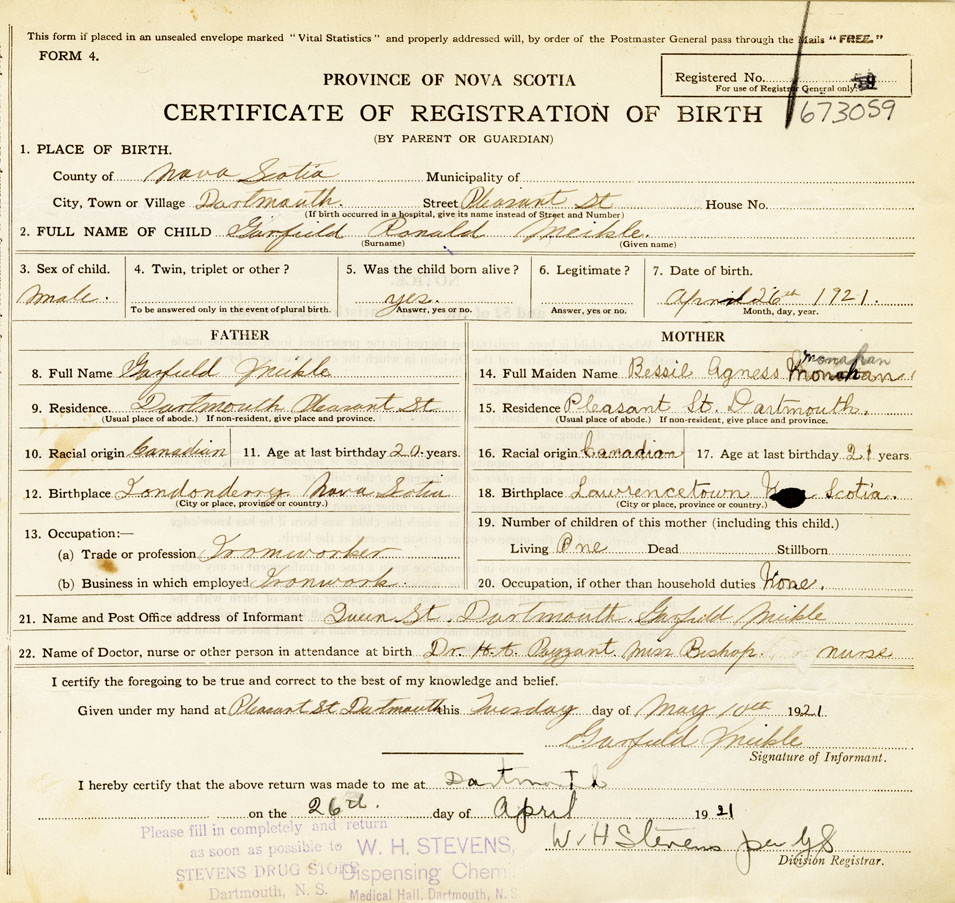 This form if placed in an unsealed envelope marked "Vital Statistics" and properly addressed will, by order of the Postmaster General pass through the Mails "FREE."
FORM 4.
PROVINCE OF NOVA SCOTIA
Registered No.
For use of Registrar General only.
CERTIFICATE OF REGISTRATION OF BIRTH
673059
(BY PARENT OR GUARDIAN)
1. PLACE OF BIRTH.
County of Nova Scotia Municipality of
City, Town or Village Dartmouth. Street Pleasant St House No.
(If birth occurred in a hospital, give its name instead of Street and Number)
2. FULL NAME OF CHILD Garfield Ronald Meikle.
(Surname) (Given name)
3. Sex of child. 4. Twin, triplet or other? 5. Was the child born alive? 6. Legitimate? 7. Date of birth.
Male. yes. April 26th 1921.
To be answered only in the event of plural birth. Answer, yes or no. Answer, yes or no. Month, day, year.
FATHER MOTHER
8. Full Name Garfield Meikle 14. Full Maiden Name Bessie Agness Monahan Monahan
9. Residence. Dartmouth Pleasant St 15. Residence Pleasant St. Dartmouth.
(Usual place of abode.) If non-resident, give place and province. (Usual place of abode.) If non-resident, give place and province.
10. Racial origin Canadian 11. Age at last birthday 20. years. 16. Racial origin Canadian 17. Age at last birthday 21 years.
12. Birthplace Londonderry Nova Scotia 18. Birthplace Lawrencetown Scotia.
(City or place, province or country.) (City or place, province or country.)
13. Occupation:— 19. Number of children of this mother (including this child.)
(a) Trade or profession Ironworker Living One Dead Stillborn
(b) Business in which employed Ironwork. 20. Occupation, if other than household duties None.
21. Name and Post Office address of Informant Queen St. Dartmouth. Garfield Meikle
22. Name of Doctor, nurse or other person in attendance at birth Dr. H.A. Payzant. Miss Bishop. nurse
I certify the foregoing to be true and correct to the best of my knowledge and belief.
Given under my hand at Pleasant St Dartmouth this Tuesday day of May 10th 1921
Garfield Meikle
Signature of Informant.
I hereby certify that the above return was made to me at Dartmouth
on the 26th. day of April 1921
W. H Stevens per
Division Registrar.
Please fill in completely and return
as soon as possible to W. H. STEVENS,
STEVENS DRUG STORE Dispensing Chemist
Dartmouth, N. S. Medical Hall, Dartmouth, N. S.